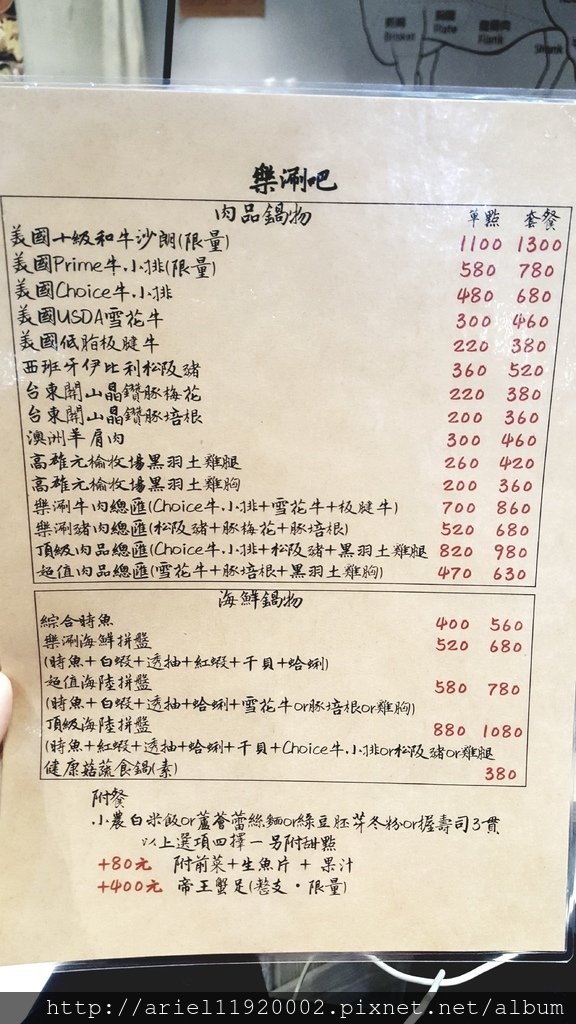 Brisket
Plate
Flank
Shank
樂涮吧
肉品鍋物 單點 套餐
美國十級和牛沙朗(限量) 1100 1300
美國Prime牛小排(限量) 580 780
美國Choice牛小排 480 680
美國USDA雪花牛 300 460
美國低脂板腱牛 220 380
西班牙伊比利松阪豬 360 520
台東關山晶鑽豚梅花 220 380
台東關山晶鑽豚培根 200 360
澳洲羊肩肉 300 460
高雄元榆牧場黑羽土雞腿 260 420
高雄元榆牧場黑羽土雞胸 200 360
樂涮牛肉總匯(Choice牛小排+雪花牛+板腱牛) 700 860
樂涮豬肉總匯(松阪豬+豚梅花+豚培根) 520 680
頂級肉品總匯(Choice牛小排+松阪豬+黑羽土雞腿 820 980
超值肉品總匯(雪花牛+豚培根+黑羽土雞胸) 470 630
海鮮鍋物
綜合時魚 400 560
樂涮海鮮拼盤 520 680
(時魚+白蝦+透抽+紅蝦+干貝+蛤蜊)
超值海陸拼盤 580 780
(時魚+白蝦+透抽+蛤蜊+雪花牛or豚培根or雞胸)
頂級海陸拼盤 880 1080
(時魚+紅蝦+透抽+蛤蜊+干貝+Choice牛小排or松阪豬or雞腿
健康菇蔬食鍋(素) 380
附餐
小農白米飯or蘆薈蕾絲麵or綠豆胚芽冬粉or握壽司3貫
以上選項四擇一 另附甜點
+80元 附前菜+生魚片+果汁
+400元 帝王蟹足(整支·限量)
http://ariel11920002.pixnet.net/album